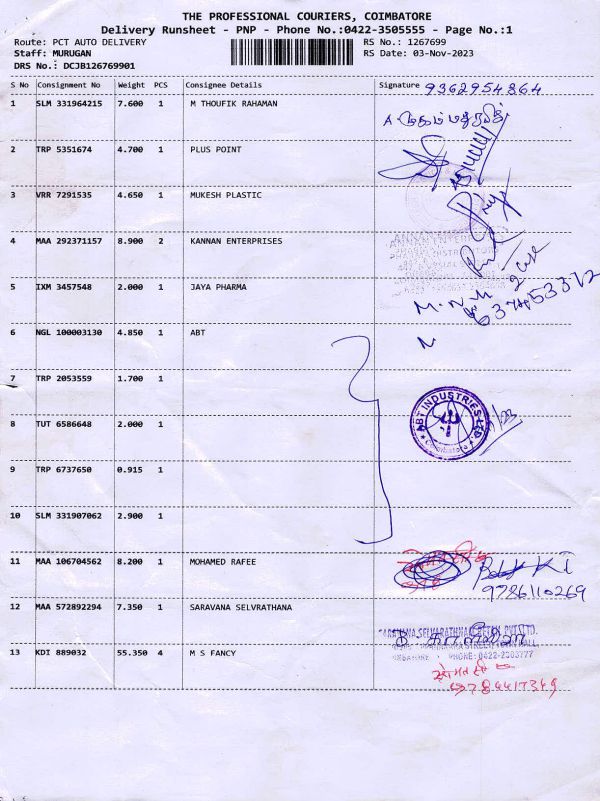 THE PROFESSIONAL COURIERS, COIMBATORE
Delivery Runsheet - PNP - Phone No.:0422-3505555 - Page No.:1
Route: PCT AUTO DELIVERY RS No.: 1267699
Staff: MURUGAN RS Date: 03-Nov-2023
DRS No.: DCJB126769901
S No Consignment No Weight PCS Consignee Details Signature 9362954864
1 SLM 331964215 7.600 1 M THOUFIK RAHAMAN
2 TRP 5351674 4.700 1 PLUS POINT
3 VRR 7291535 4.650 1 MUKESH PLASTIC
4 MAA 292371157 8.900 2 KANNAN ENTERPRISES
5 IXM 3457548 2.000 1 JAYA PHARMA
6 NGL 100003130 4.850 1 ABT
7 TRP 2053559 1.700 1
8 TUT 6586648 2.000 1
ABT INDUSTRIES LTD.
Coimbatore
9 TRP 6737650 0.915 1
10 SLM 331907062 2.900 1
11 MAA 106704562 8.200 1 MOHAMED RAFEE
9786110269
12 MAA 572892294 7.350 1 SARAVANA SELVRATHANA
PHONE: 0422-2003777
13 KDI 889032 55.350 4 M S FANCY
9784417349